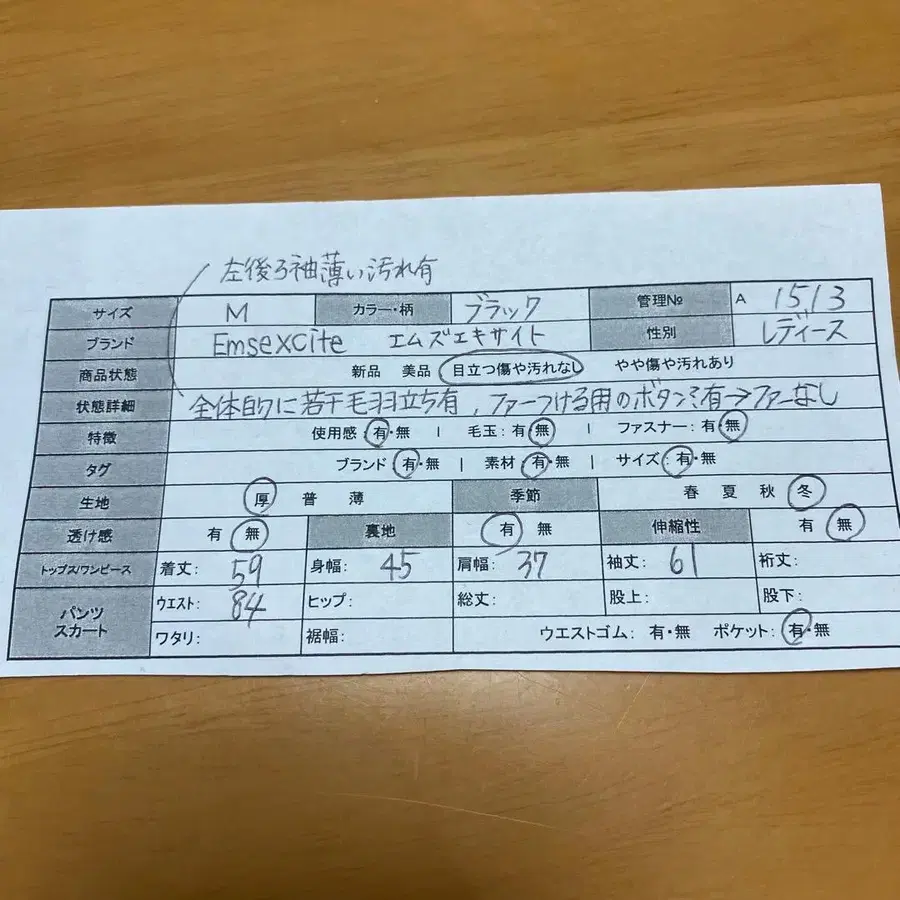 左後ろ袖薄い汚れ有
サイズ M カラー・柄 ブラック 管理№ A 1513
ブランド Emsexcite エムズエキサイト 性別 レディース
商品状態 新品 美品 目立つ傷や汚れなし やや傷や汚れあり
状態詳細 全体的に若干毛羽立ち有、ファーつける用のボタン有→ファーなし
特徴 使用感:有・無 | 毛玉:有・無 | ファスナー:有・無
タグ ブランド:有・無 | 素材:有・無 | サイズ:有・無
生地 厚 普 薄 季節 春 夏 秋 冬
透け感 有 無 裏地 有 無 伸縮性 有 無
トップス/ワンピース 着丈: 59 身幅: 45 肩幅: 37 袖丈: 61 裄丈:
パンツ スカート ウエスト: 84 ヒップ: 総丈: 股上: 股下:
ワタリ: 裾幅: ウエストゴム: 有・無 ポケット:有・無